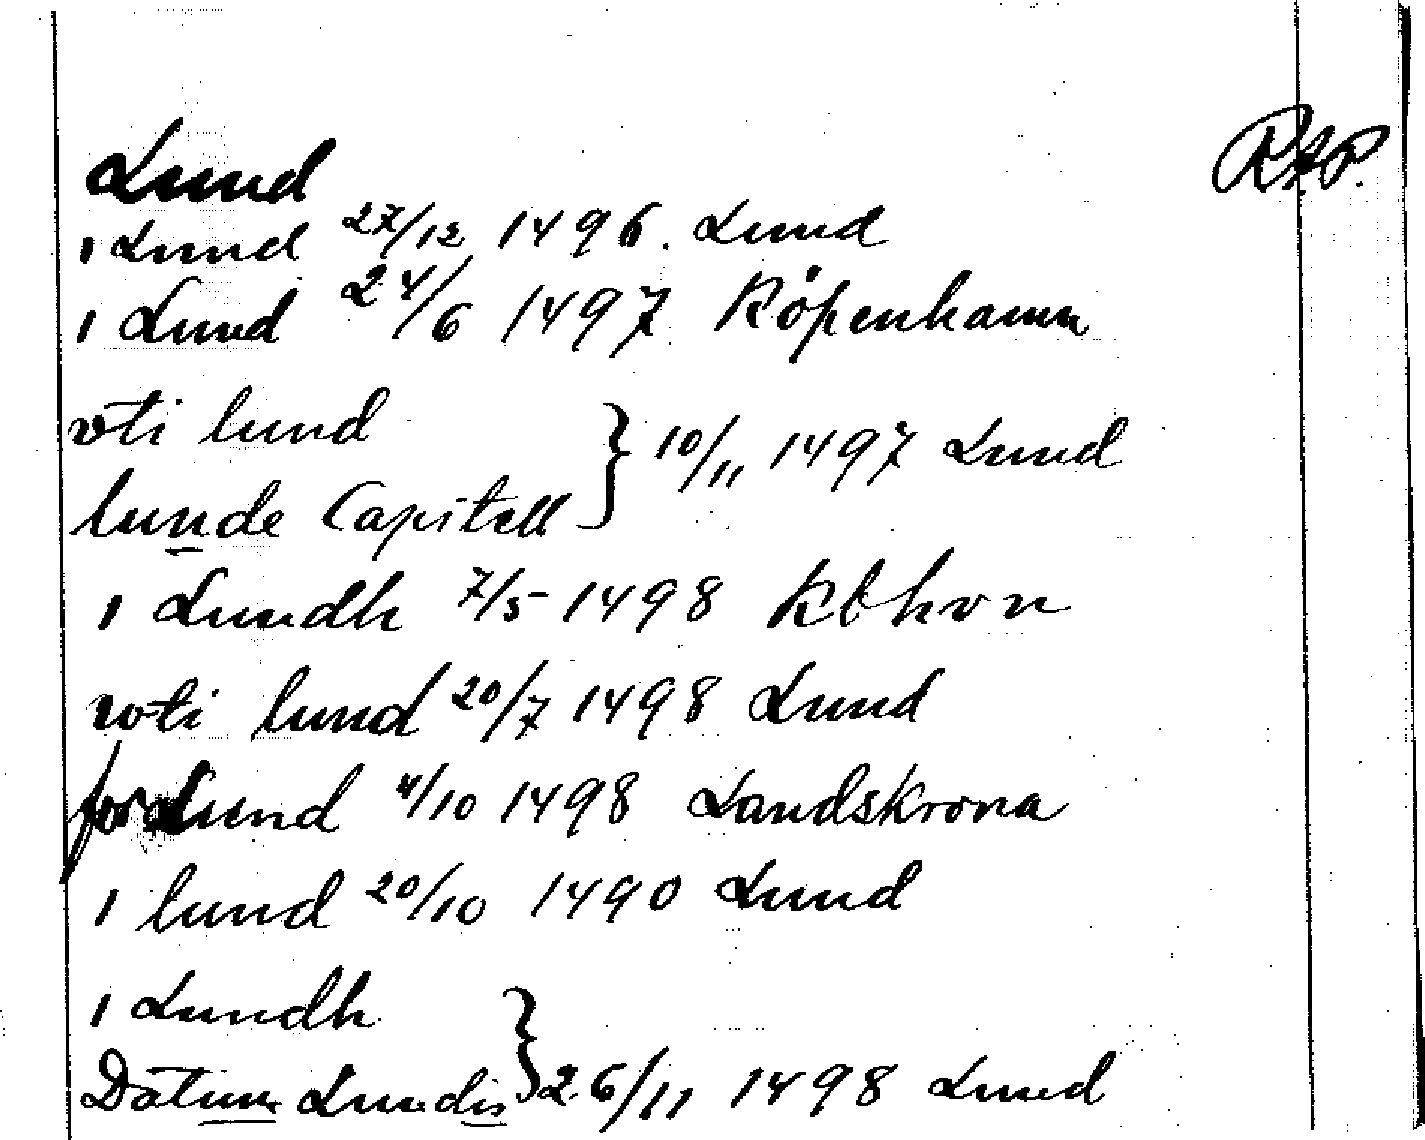 RAP.
Lund
i Lund 27/12 1496. Lund
i Lund 24/6 1497 Köpenhamn
vti lund
lunde Capitell } 10/11 1497 Lund
i Lundh 7/5 1498 Kbhvn
wti lund 20/7 1498 Lund
for Lund 4/10 1498 Landskrona
i lund 20/10 1490 Lund
i Lundh
Datum Lundis } 26/11 1498 Lund